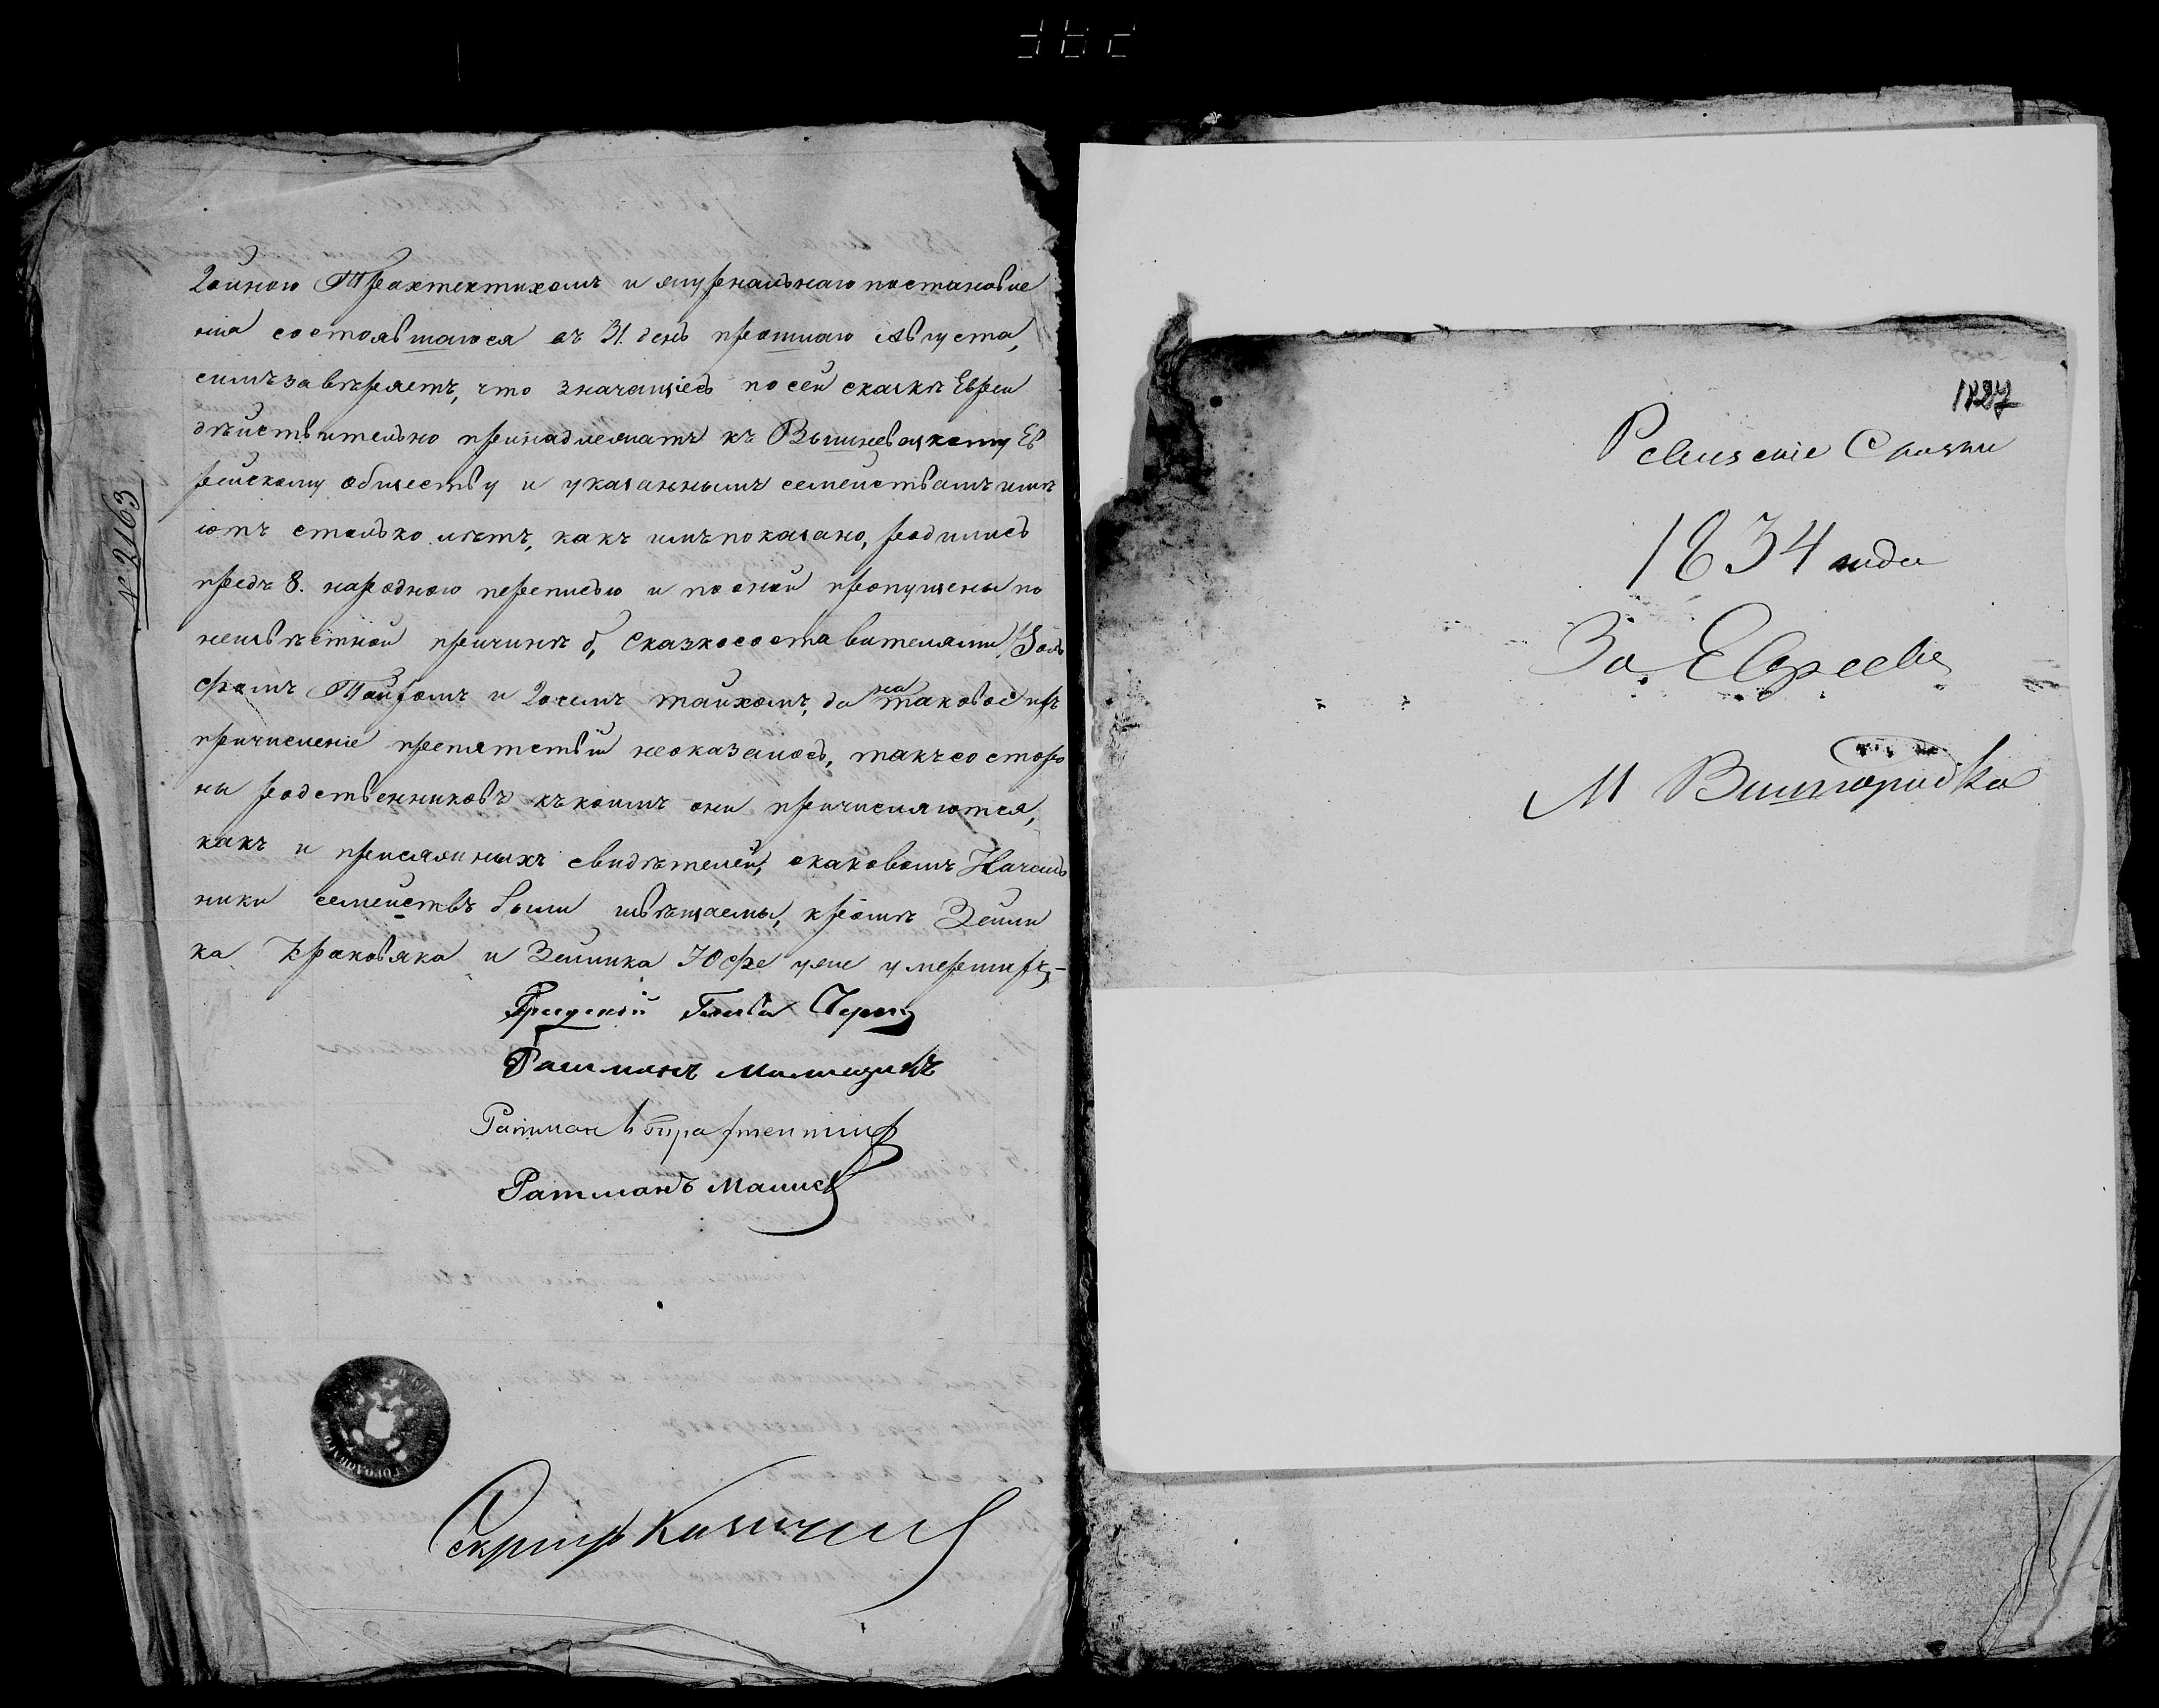 № 2163
Трахтентихомъ и журнальнаго постановле
нія состоявшагося въ 31. день прошлаго Августа,
симъ завѣряетъ, что значащіесь по сей сказкѣ Евреи
дѣйствительно принадлежатъ къ Вышневецкому Ев
рейскому обществу и указаннымъ семействамъ имѣ
ютъ столько лѣтъ, какъ имъ показано, родились
предъ 8. народною переписью и по оной пропущены по
неизвѣстной причинѣ б, Сказкосоставителями
и тайхомъ, да на таковое ихъ
причисленіе препятствій неоказалось, такъ со сторо
ны родственниковъ къ коимъ они причисляются,
какъ и присяжныхъ свидѣтелей, о каковомъ Началь
ники семействъ были извѣщаемы, кромѣ Зейли
ка Краковяка и Зейлика Юфе уже умершихъ,-
Градскій Глава
Ратманъ
Ратманъ
Ратманъ
1827
Ревизскіе Сказки
1834 года
За Евреевъ
М Вишгородка